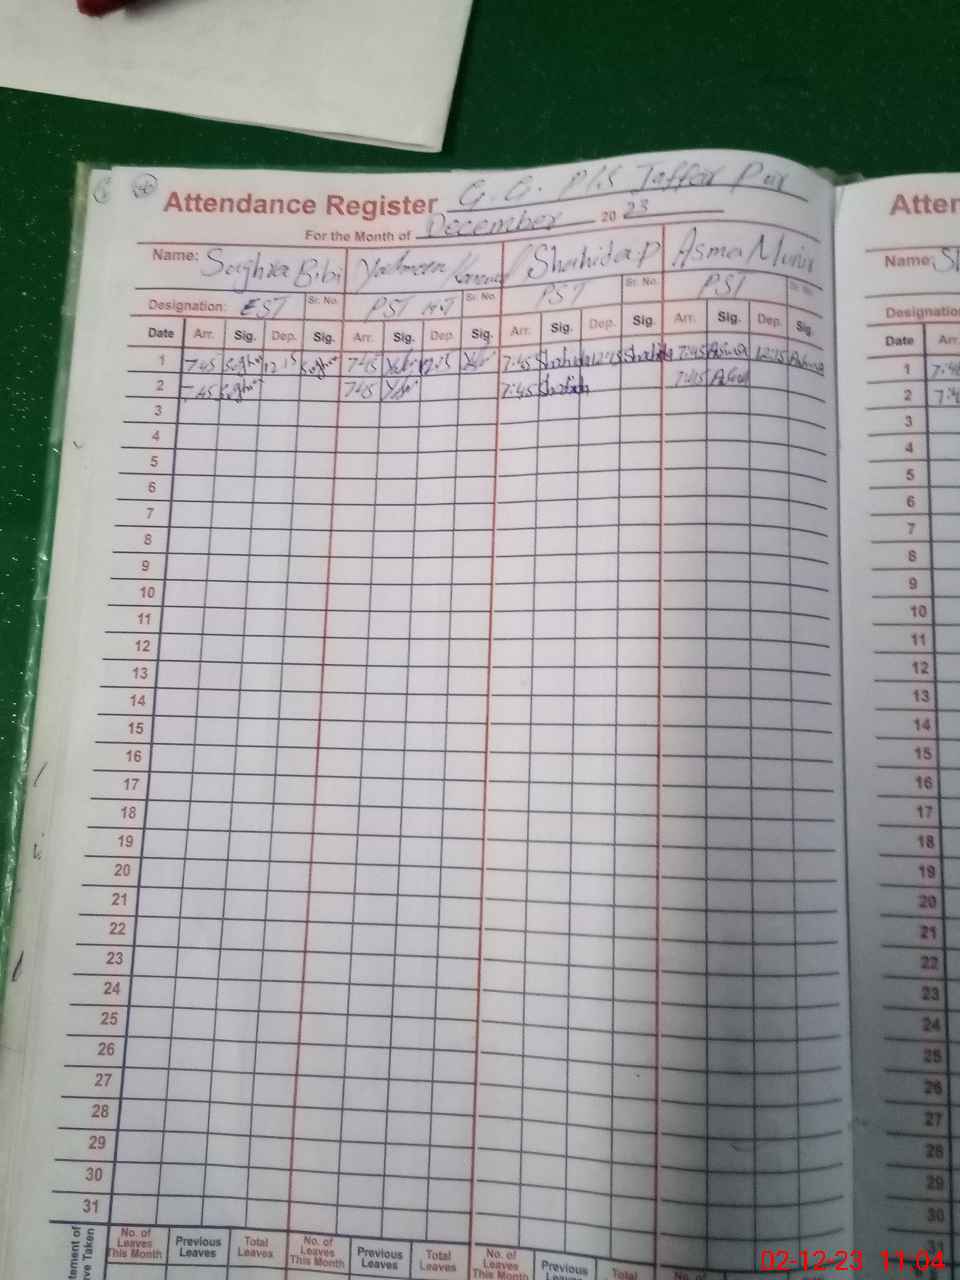 Attendance Register G. G. P/S Jaffar Pur
For the Month of December 20 23
Name: Sughra Bibi Yasmeen Shahida P Asma Munir
Designation: EST Sr. No. PST H.T Sr. No. PST Sr. No. PST Sr. No.
Date Arr. Sig. Dep. Sig. Arr. Sig. Dep. Sig. Arr. Sig. Dep. Sig. Arr. Sig. Dep. Sig.
1 7:45 Sughra 12:15 Sughra 7:45 12:15 7:45 Shahida 12:15 Shahida 7:45 Asma 12:15 Asma
2 7:45 Sughra 7:45 7:45 Shahida 7:45 Asma
3
4
5
6
7
8
9
10
11
12
13
14
15
16
17
18
19
20
21
22
23
24
25
26
27
28
29
30
31
No. of Leaves This Month Previous Leaves Total Leaves No. of Leaves This Month Previous Leaves Total Leaves No. of Leaves This Month Previous Leaves Total No. of
tement of
ve Taken
Atten
Name: Sh
Designatio
Date Arr.
1 7:4
2 7:4
3
4
5
6
7
8
9
10
11
12
13
14
15
16
17
18
19
20
21
22
23
24
25
26
27
28
29
30
31
02-12-23 11:04